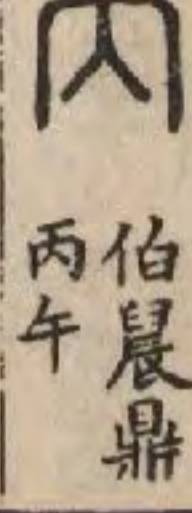 丙
伯䢅鼎
丙午